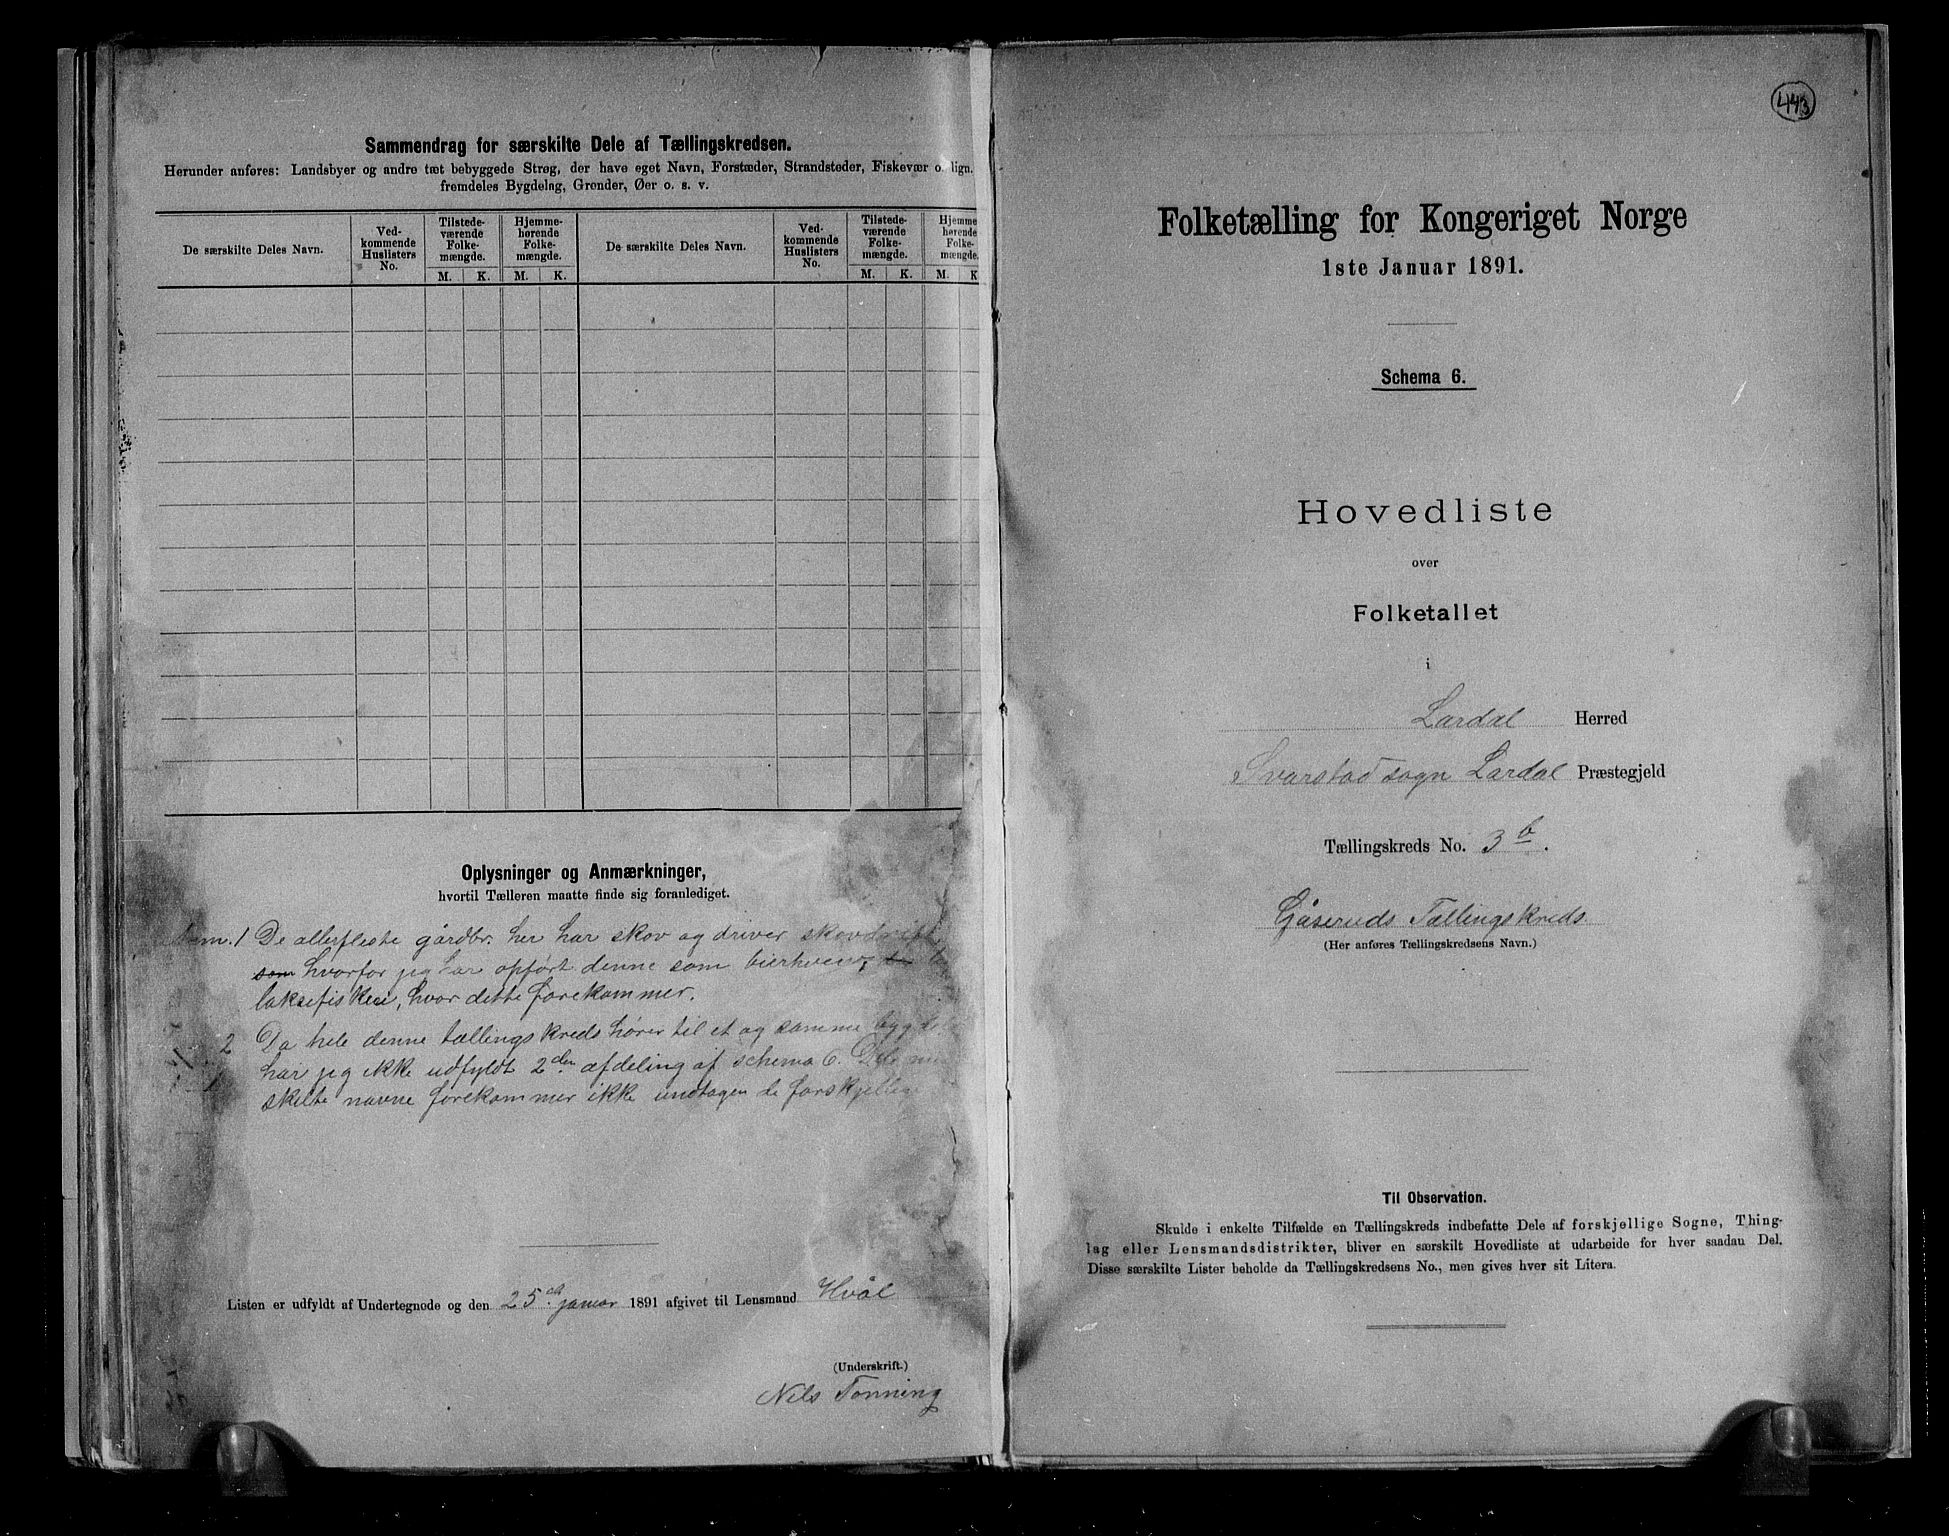 Sammendrag for særskilte Dele af Tællingskredsen.
Herunder anføres: Landsbyer og andre tæt bebyggede Strøg, der have eget Navn, Forstæder, Strandsteder, Fiskevær o. lign.
fremdeles Bygdelag, Grender, Øer o. s. v.
De særskilte Deles Navn.
Ved-
kommende
Huslisters
No.
Tilstede-
værende
Folke-
mængde.
M. K.
Hjemme-
hørende
Folke-
mængde.
M. K.
De særskilte Deles Navn.
Ved-
kommende
Huslisters
No.
Tilstede-
værende
Folke-
mængde.
M. K.
Hjemme
hørende
Folke-
mængde.
M. K
Oplysninger og Anmærkninger,
hvortil Tælleren maatte finde sig foranlediget.
1 De allerfleste gårdbr. her har skov og driver skovdrift
som hvorfor jeg har opført denne som bierhverv,
laksefiskeri, hvor dette forekommer.
2 Da hele denne tællingskreds hører til et og samme
har jeg ikke udfyldt 2den afdeling af schema 6.
skilte navne forekommer ikke undtagen de
Listen er udfyldt af Undertegnede og den 25de januar 1891 afgivet til Lensmand Hvål
(Underskrift.)
Nils Tonning
443
Folketælling for Kongeriget Norge
1ste Januar 1891.
Schema 6.
Hovedliste
over
Folketallet
i
Lardal Herred
Svarstad sogn Lardal Præstegjeld
Tællingskreds No. 3b.
Gåseruds Tællingskreds
(Her anføres Tællingskredsens Navn.)
Til Observation.
Skulde i enkelte Tilfælde en Tællingskreds indbefatte Dele af forskjellige Sogne, Thing-
lag eller Lensmandsdistrikter, bliver en særskilt Hovedliste at udarbeide for hver saadan Del.
Disse særskilte Lister beholde da Tællingskredsens No., men gives hver sit Litera.